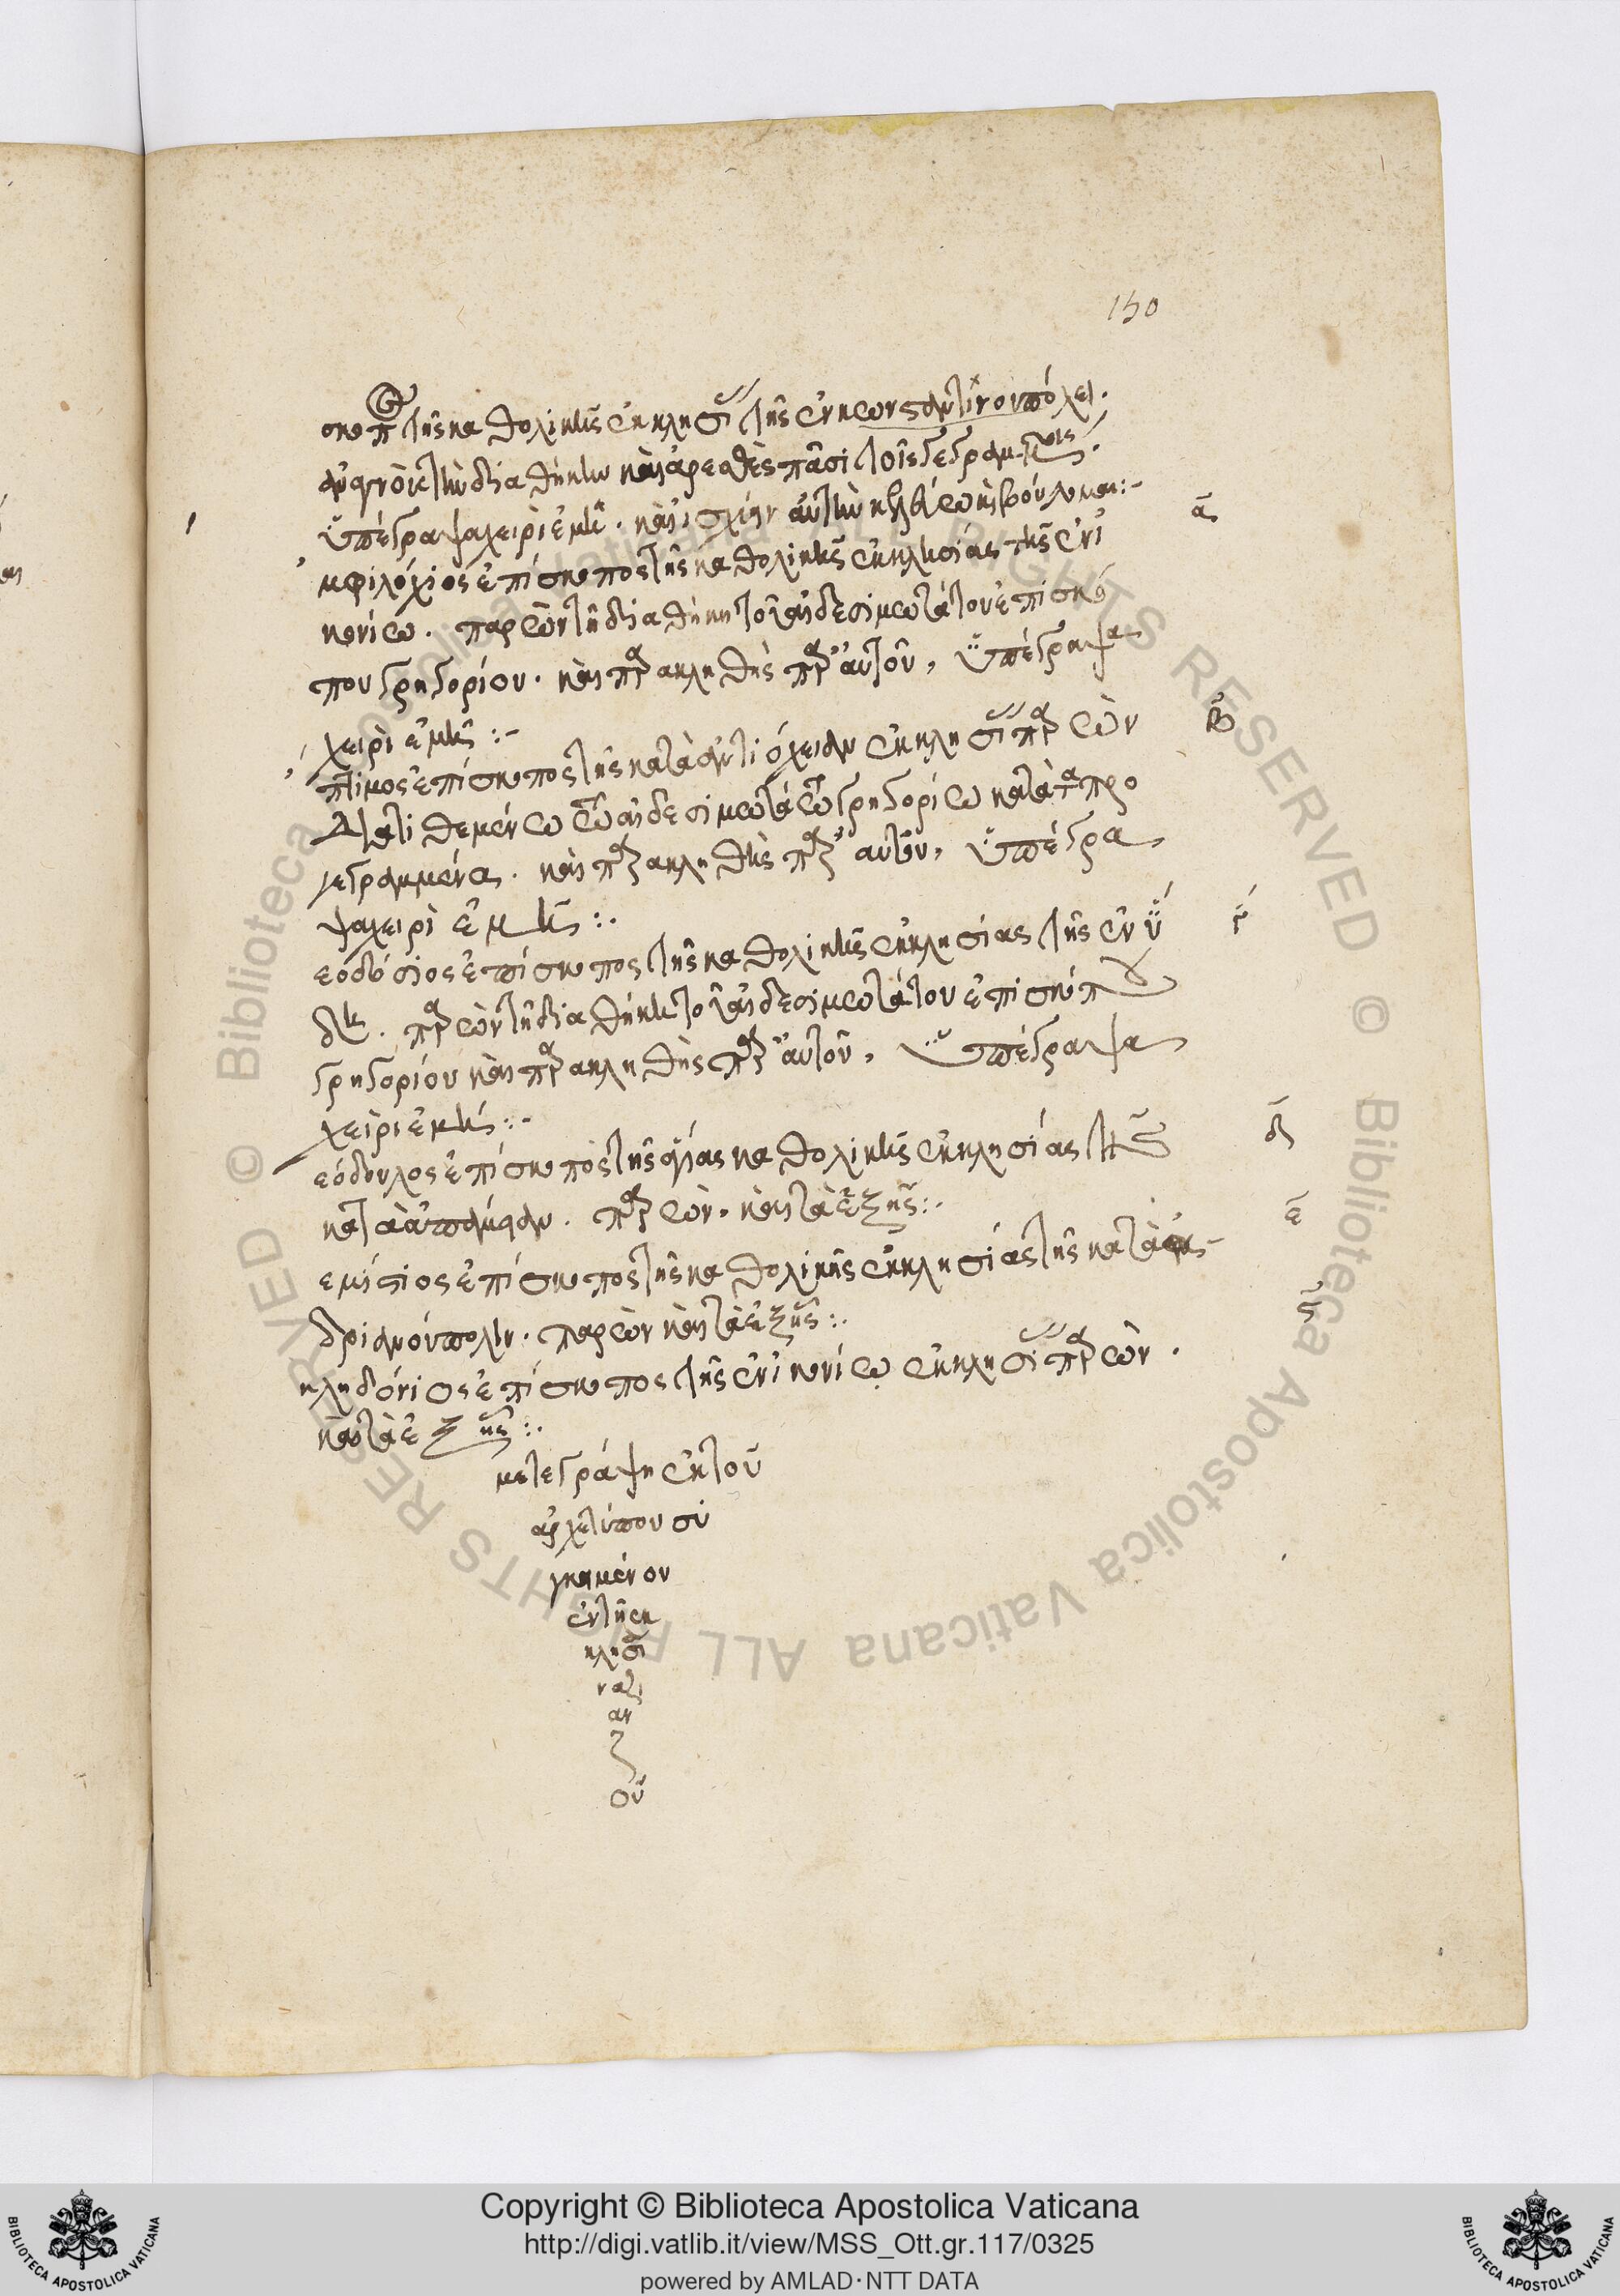 150
σκοπ τῆς καθολικῆς ἐκκλησι τῆς ἐν κωνσταντινουπόλει.
ἀναγνοὺς τὴν διαθήκην καὶ ἀρεσθεὶς πᾶσι τοῖς γεγραμμένοις.
ὑπέγραψα χειρὶ ἐμῆ. καὶ ἰσχύειν αὐτὴν κελεύω καὶ βούλομαι:-
α
μφιλόχιος ἐπίσκοπος τῆς καθολικῆς ἐκκλησίας τῆς ἐν ἰ
κονίω. παρὼν τῆ διαθήκη τοῦ αἰδεσιμωτάτου ἐπισκό
που γρηγορίου. καὶ παρακληθεὶς παρ' αὐτοῦ, ὑπέγραψα
χειρὶ ἐμῆ:-
β
πτιμος ἐπίσκοπος τῆς κατὰ ἀντιόχειαν ἐκκλησι παρὼν
διατιθεμένω τῶ αἰδεσιμωτάτω γρηγορίω κατὰ τα προ
γεγραμμένα. καὶ παρακληθεὶς παρ' αὐτοῦ, ὑπέγρα
ψα χειρὶ ἐμῆ:.
γ
εοδόσιος ἐπίσκοπος τῆς καθολικῆς ἐκκλησίας τῆς ἐν ὕ
δης. παρὼν τῆ διαθήκη τοῦ αἰδεσιμωτάτου ἐπισκόπου
γρηγορίου καὶ παρακληθεὶς παρ' αὐτοῦ, ὑπέγραψα
χειρὶ ἐμῆ:-
δ
εόδουλος ἐπίσκοπος τῆς ἁγίας καθολικῆς ἐκκλησίας τῆς
κατὰ ἀπάμειαν. παρὼν. καὶ τὰ ἑξῆς:.
ε
εμίστιος ἐπίσκοπος τῆς καθολικῆς ἐκκλησίας τῆς κατὰ
δριανούπολιν. παρὼν καὶ τὰ ἑξῆς:.
ς
κληδόνιος ἐπίσκοπος τῆς ἐν ἰκονίω ἐκκλησι παρὼν.
καὶ τὰ ἑξῆς:.
μετεγράφη ἐκ τοῦ
ἀρχετύπου
κειμένου
ἐν τῆ εκ
κλησι
ναζι
αν
ζ
οῦ
Copyright © Biblioteca Apostolica Vaticana
http://digi.vatlib.it/view/MSS_Ott.gr.117/0325
powered by AMLAD·NTT DATA
BIBLIOTECA APOSTOLICA VATICANA
BIBLIOTECA APOSTOLICA VATICANA
© Biblioteca Apostolica Vaticana ALL RIGHTS RESERVED © Biblioteca Apostolica Vaticana ALL RIGHTS RESERVED